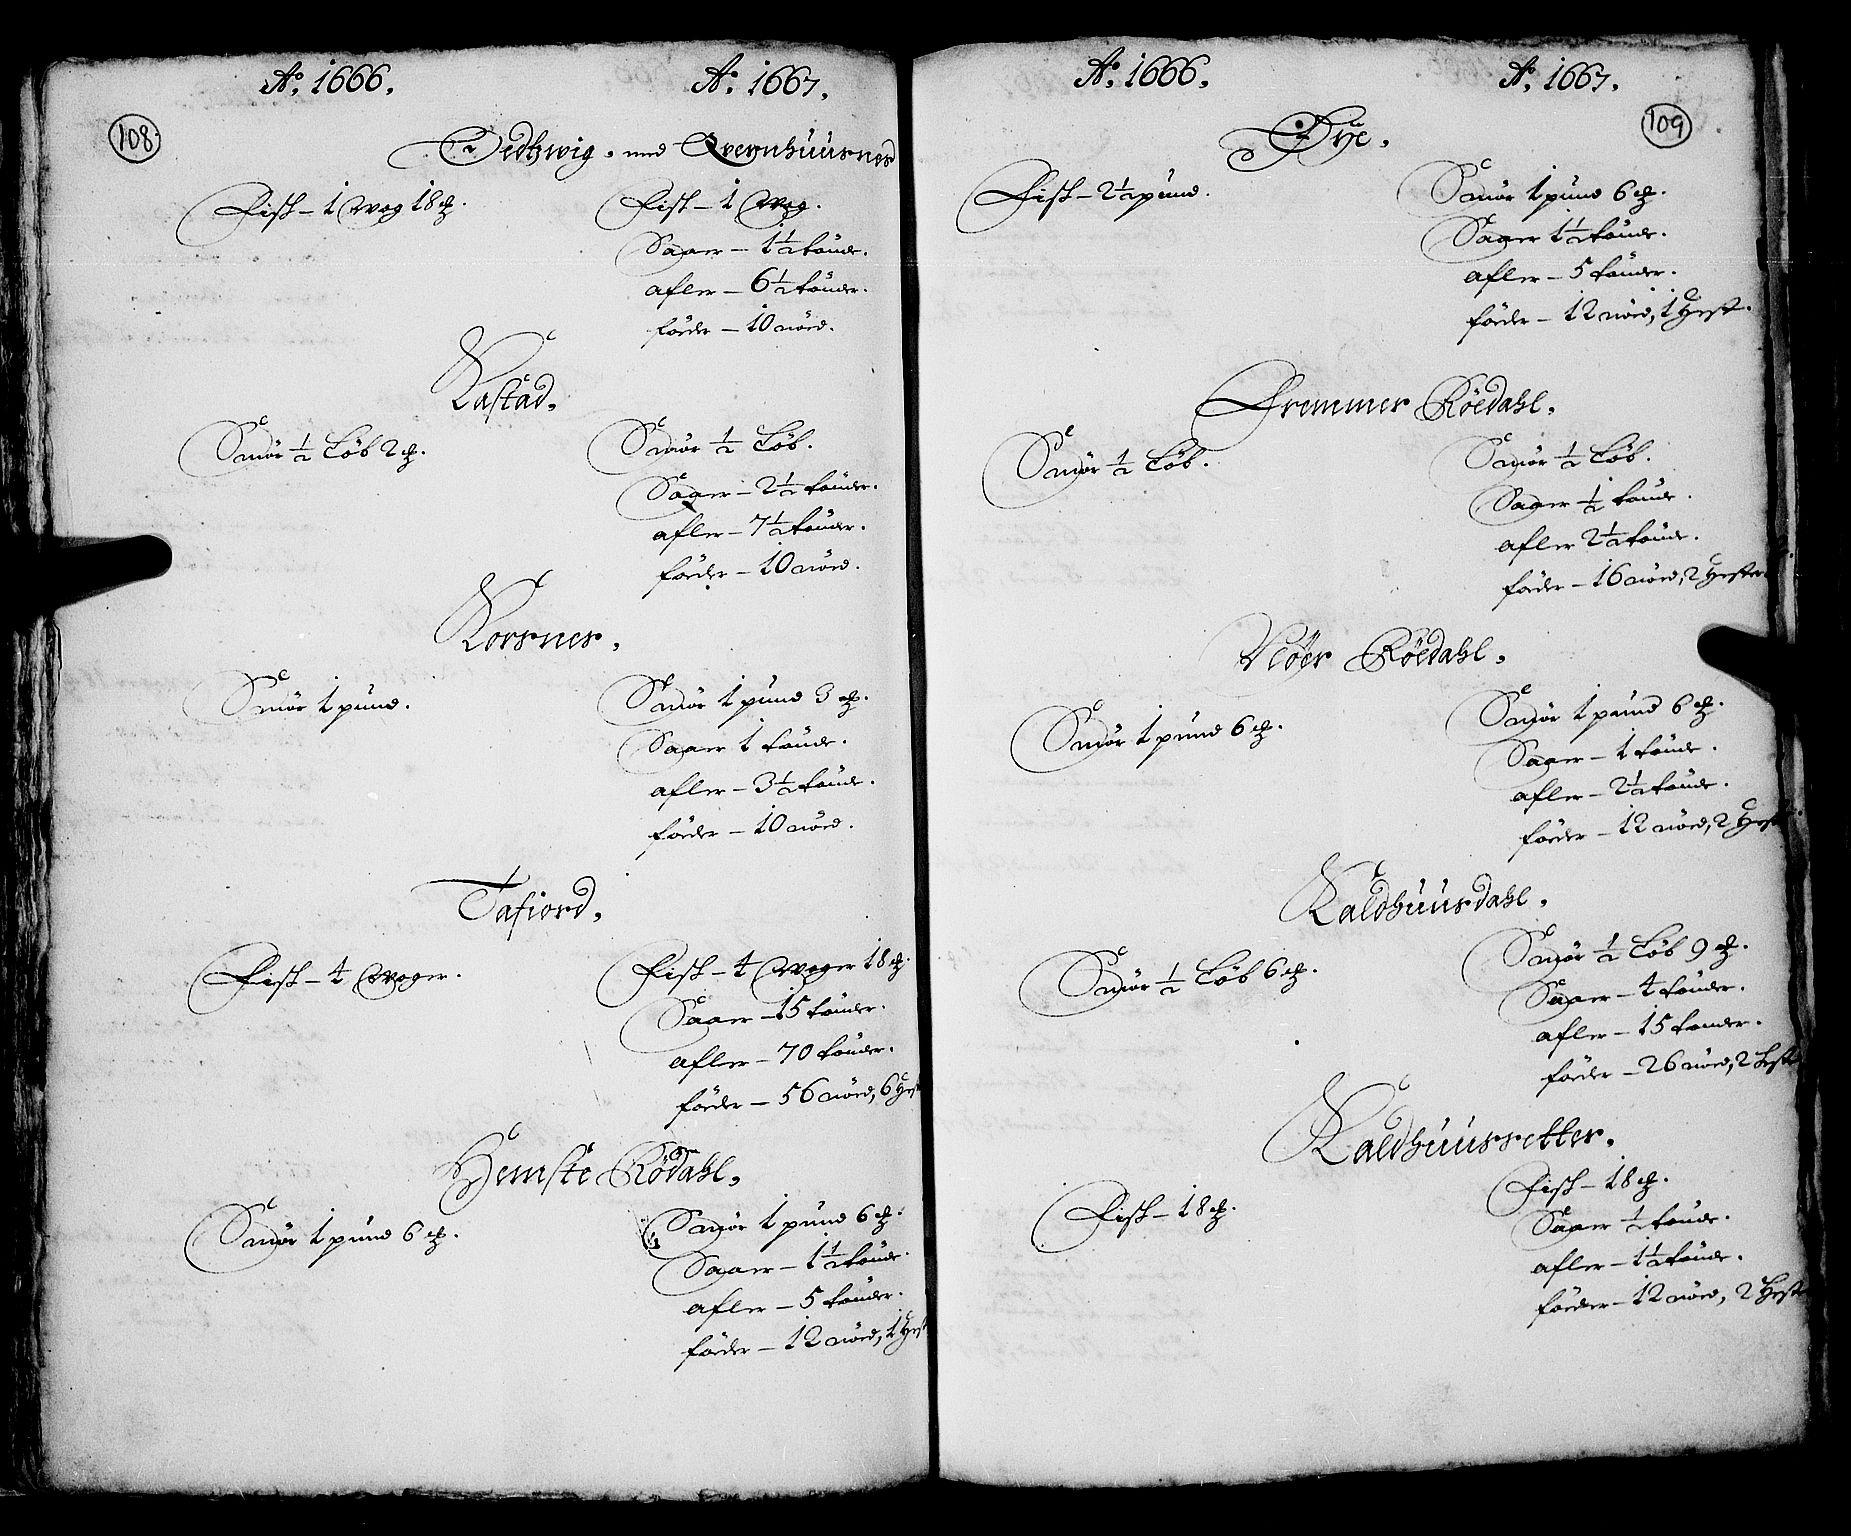 Aº. 1666. Aº. 1667.
108.
Oedhwig. med Qvernhuusnes
Fisk – 1 Wog 18 ℔. Fisk – 1 Wog.
Saaer – 1½ tønde.
afler – 6½ tønder.
føeder – 10 nöed.
Kastad.
Smör ½ Løb 2 ℔. Smör ½ Løb.
Saaer – 2½ tønder.
afler – 7½ tønder.
föeder – 10 nöed.
Korsnes.
Smör 1 pund. Smör 1 pund 3 ℔.
Saaer 1 tønde.
afler – 3½ tönde.
föeder – 10 nöed.
Tafiord.
Fisk – 4 Woger. Fisk – 4 Woger 18 ℔.
Saaer – 15 tönder.
afler – 70 tönder.
föeder – 56 nöed, 6 Hest
Hemste Rödahl.
Smör 1 pund 6 ℔. Smör 1 pund 6 ℔.
Saaer – 1½ tönde.
afler – 5 tönder.
föeder – 12 nöed, 1 Hest
Aº. 1666. Aº. 1667.
109
Öye.
Fisk – 2½ pund. Smör 1 pund 6 ℔.
Saaer 1½ tönde.
afler – 5 tönder.
föeder – 12 nöed, 1 Hest.
Fremmer Röedahl.
Smör ½ Löb. Smör ½ Löb.
Saaer – ½ tønde.
afler 2½ tönde.
föeder – 16 nöed, 2 Hester.
Röedahl.
Smör 1 pund 6 ℔. Smör 1 pund 6 ℔.
Saaer – 1 tönde.
afler – 2½ tönde.
föeder – 12 nöed, 2 Hest
Kaldhuusdahl.
Smör ½ Löb 6 ℔. Smör ½ Löb 9 ℔.
Saaer – 4 tönder.
afler – 15 tonder.
föeder – 26 nöed, 2 Hest
Kaldhuussetter.
Fisk – 18 ℔. Fisk – 18 ℔.
Saaer ½ tönde.
afler – 1½ tönde.
föeder – 12 nöed, 2 Hest